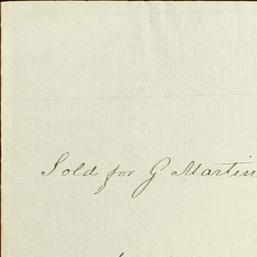 Sold for G Martin